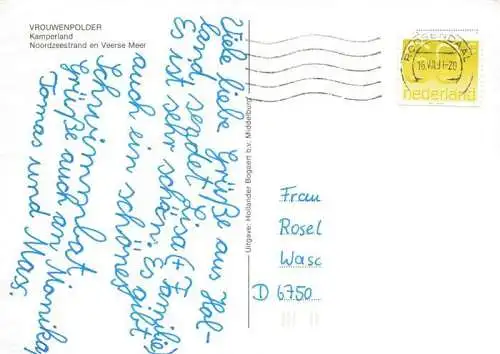 VROUWENPOLDER
Kamperland
Noordzeestrand en Veerse Meer
Viele liebe Grüße aus Hol-
land, sendet Lisa (+ Familie)
Es ist sehr schön. Es gibt
auch ein schönes
Schwimmbat
Grüße auch an Monika,
Tomas und Max.
Uitgave: Hollander Bogaert b.v. Middelburg
ROOSENDAAL
16.VII.91-20
nederland
Frau
Rosel
Wasc
D 6750